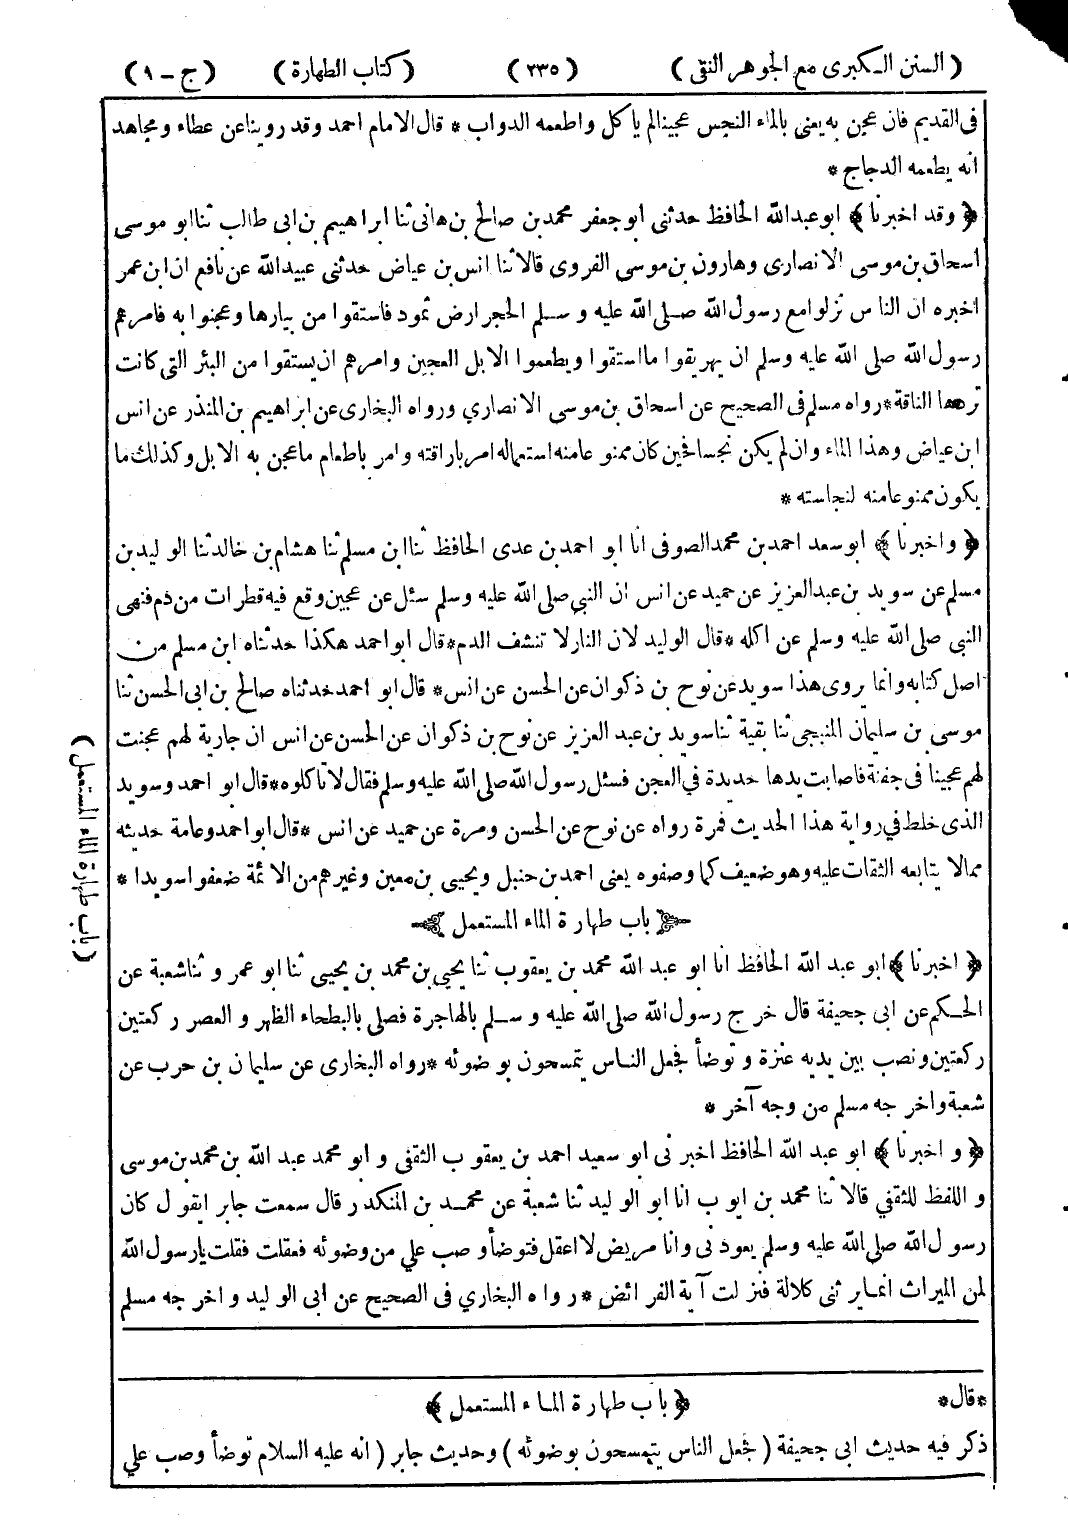 (السنن الكبرى مع الجوهر النقى) (٢٣٥) (كتاب الطهارة) (ج-١)
فى القديم فان عجن به يعنى بالماء النجس عجينا لم ياكل واطعمه الدواب * قال الامام احمد وقد روينا عن عطاء ومجاهد
انه يطعمه الدجاج *
﴿ وقد اخبرنا ﴾ ابو عبد الله الحافظ حدثنى ابو جعفر محمد بن صالح بن هانئ ثنا ابراهيم بن ابى طالب ثنا ابو موسى
اسحاق بن موسى الانصارى وهارون بن موسى الفروى قالا ثنا انس بن عياض حدثنى عبيد الله عن نافع ان ابن عمر
اخبره ان الناس نزلوا مع رسول الله صلى الله عليه وسلم الحجر ارض ثمود فاستقوا من بيارها وعجنوا به فامرهم
رسول الله صلى الله عليه وسلم ان يهريقوا ما استقوا ويطعموا الابل العجين وامرهم ان يستقوا من البئر التى كانت
تردها الناقة * رواه مسلم فى الصحيح عن اسحاق بن موسى الانصاري ورواه البخارى عن ابراهيم بن المنذر عن انس
ابن عياض وهذا الماء وان لم يكن نجسا فحين كان ممنوعا منه استعماله امر باراقته وامر باطعام ما عجن به الابل وكذلك ما
يكون ممنوعا منه لنجاسته *
﴿ واخبرنا ﴾ ابو سعد احمد بن محمد الصوفى انا ابو احمد بن عدى الحافظ ثنا ابن مسلم ثنا هشام بن خالد ثنا الوليد بن
مسلم عن سويد بن عبد العزيز عن حميد عن انس ان النبي صلى الله عليه وسلم سئل عن عجين وقع فيه قطرات من دم فنهى
النبى صلى الله عليه وسلم عن اكله * قال الوليد لان النار لا تنشف الدم * قال ابو احمد هكذا حدثناه ابن مسلم من
اصل كتابه وانما يروى هذا سويد عن نوح بن ذكوان عن الحسن عن انس * قال ابو احمد حدثناه صالح بن ابى الحسن ثنا
موسى بن سليمان المنبجى ثنا بقية ثنا سويد بن عبد العزيز عن نوح بن ذكوان عن الحسن عن انس ان جارية لهم عجنت
لهم عجينا فى جفنة فاصابت يدها حديدة في العجن فسئل رسول الله صلى الله عليه وسلم فقال لا تاكلوه * قال ابو احمد وسويد
الذى خلط في رواية هذا الحديث فمرة رواه عن نوح عن الحسن ومرة عن حميد عن انس * قال ابو احمد وعامة حديثه
مما لا يتابعه الثقات عليه وهو ضعيف كما وصفوه يعنى احمد بن حنبل ويحيى بن معين وغيرهم من الائمة ضعفوا سويدا *
باب طهارة الماء المستعمل
﴿ اخبرنا ﴾ ابو عبد الله الحافظ انا ابو عبد الله محمد بن يعقوب ثنا يحيى بن محمد بن يحيى ثنا ابو عمر و ثنا شعبة عن
الحكم عن ابى جحيفة قال خرج رسول الله صلى الله عليه وسلم بالهاجرة فصلى بالبطحاء الظهر و العصر ركعتين
ركعتين ونصب بين يديه عنزة و توضأ فجعل الناس يتمسحون بوضوئه * رواه البخارى عن سليمان بن حرب عن
شعبة واخرجه مسلم من وجه آخر *
﴿ و اخبرنا ﴾ ابو عبد الله الحافظ اخبرنى ابو سعيد احمد بن يعقوب الثقفى و ابو محمد عبد الله بن محمد بن موسى
و اللفظ للثقفي قالا ثنا محمد بن ايوب انا ابو الوليد ثنا شعبة عن محمد بن المنكدر قال سمعت جابر ايقول كان
رسول الله صلى الله عليه وسلم يعودنى وانا مريض لا اعقل فتوضأ وصب علي من وضوئه فعقلت فقلت يارسول الله
لمن الميراث انما يرثنى كلالة فنزلت آية الفرائض * رواه البخاري فى الصحيح عن ابى الوليد واخرجه مسلم
(باب طهارة الماء المستعمل)
*قال* ﴿ باب طهارة الماء المستعمل ﴾
ذكر فيه حديث ابى جحيفة (فجعل الناس يتمسحون بوضوئه) وحديث جابر (انه عليه السلام توضأ وصب علي